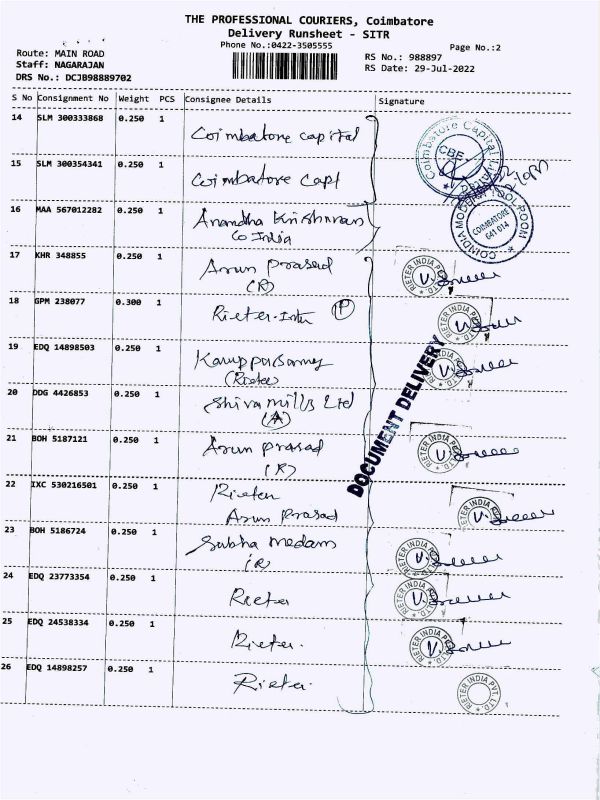 THE PROFESSIONAL COURIERS, Coimbatore
Delivery Runsheet - SITR
Phone No.:0422-3505555
Page No.:2
Route: MAIN ROAD
Staff: NAGARAJAN
DRS No.: DCJB98889702
RS No.: 988897
RS Date: 29-Jul-2022
S No Consignment No Weight PCS Consignee Details Signature
14 SLM 300333868 0.250 1 Coimbatore capital
15 SLM 300354341 0.250 1 Coimbatore Capt
16 MAA 567012282 0.250 1 Anandha Krishnan
Co India
17 KHR 348855 0.250 1 Arun Prasad
(R)
18 GPM 238077 0.300 1 Rieter-Intr (P)
19 EDQ 14898503 0.250 1 Karuppasamy
(Rieter)
20 DDG 4426853 0.250 1 Shiva mills Ltd
(A)
21 BOH 5187121 0.250 1 Arun prasad
(R)
22 IXC 530216501 0.250 1 Rieter
Arun Prasad
23 BOH 5186724 0.250 1 Subha medam
(R)
24 EDQ 23773354 0.250 1 Rieter
25 EDQ 24538334 0.250 1 Rieter.
26 EDQ 14898257 0.250 1 Rieter.
Coimbatore Capital
CBE
COIMBATORE
641 014
DOCUMENT DELIVERY
RIETER INDIA PVT. LTD.